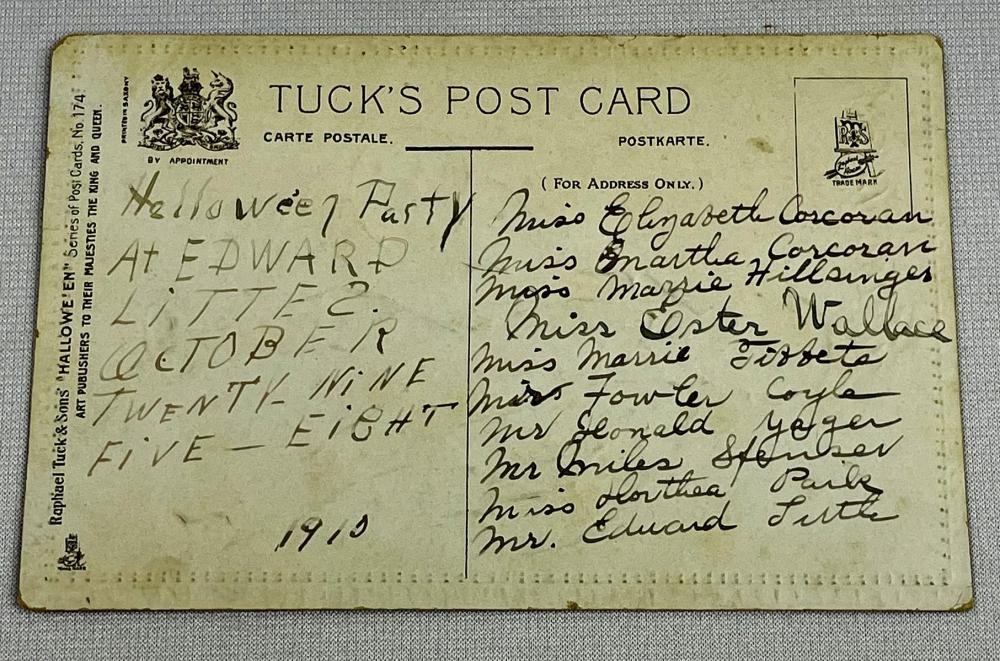 Raphael Tuck & Sons' "HALLOWE'EN" Series of Post Cards, No. 174.
ART PUBLISHERS TO THEIR MAJESTIES THE KING AND QUEEN.
PRINTED IN SAXONY
BY APPOINTMENT
TUCK'S POST CARD
CARTE POSTALE.
POSTKARTE.
(FOR ADDRESS ONLY.)
TRADE MARK
Halloween Party
At EDWARD
LITTES.
OCTOBER
TWENTY-NiNE
FiVE — EiGHT
1910
Miss Elizabeth Corcoran
Miss Martha Corcoran
Miss Marrie Hillsinger
Miss Ester Wallace
Miss Marrie Tibbets
Miss Fowler Coyle
Mr Leonald Yager
Mr Miles Spenser
Miss Dorthea Park
Mr. Edward Little